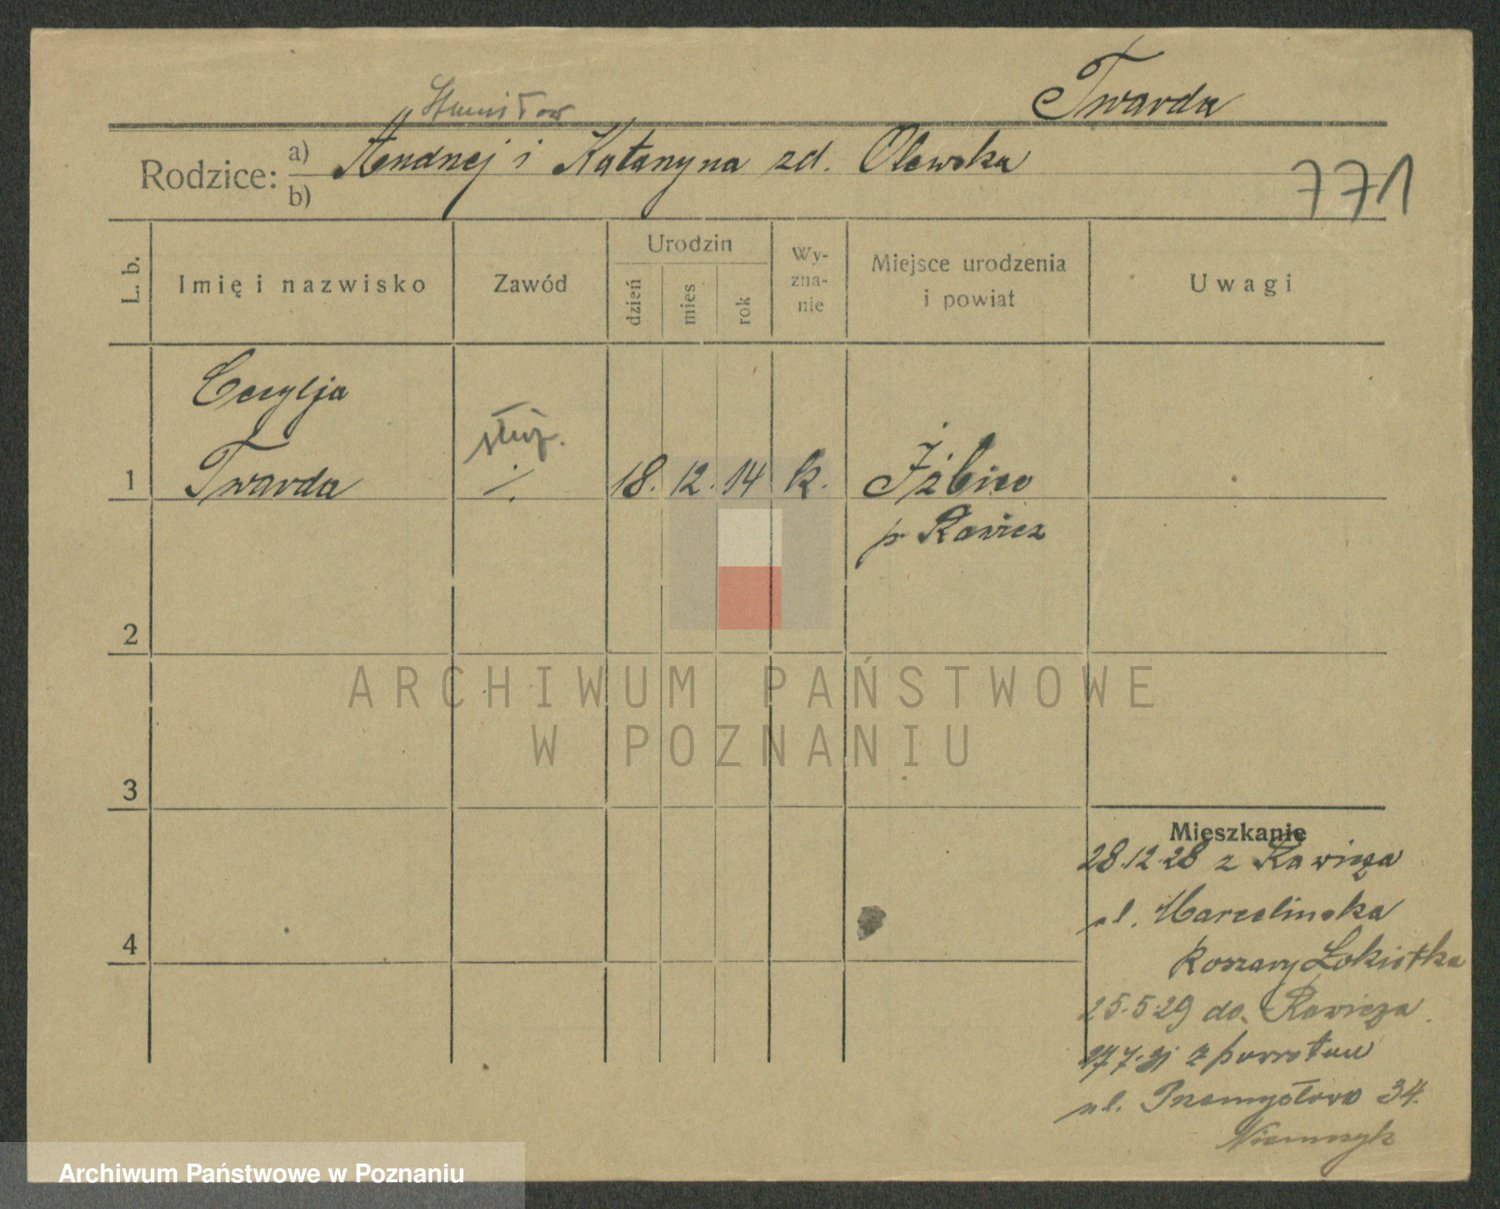 Twarda
Stanisław
Rodzice: a) Andrzej i Katarzyna zd. Olewska
b)
771
L. b.
Imię i nazwisko
Zawód
Urodzin
dzień
mies
rok
Wy-
zna-
nie
Miejsce urodzenia
i powiat
Uwagi
Cecylja
1 Twarda służ. 18. 12. 14 k. Iżbice
p Rawicz
2
3
4
Mieszkanie
28.12.28 z Rawicza
ul. Marcelińska
Koszary Łokietka
25.5.29 do Rawicza.
27.7.31 z powrotem
ul. Przemysłowa 34.
Niemczyk
ARCHIWUM PAŃSTWOWE
W POZNANIU
Archiwum Państwowe w Poznaniu